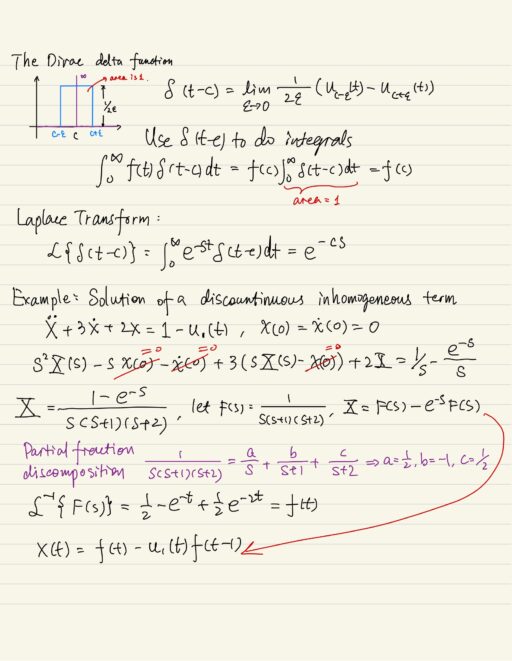 The Dirac delta function
∞
area is 1.
1/2ε
c-ε c c+ε
δ(t-c) = lim_{ε→0} 1/2ε (u_{c-ε}(t) - u_{c+ε}(t))
Use δ(t-c) to do integrals
∫₀^∞ f(t)δ(t-c)dt = f(c)∫₀^∞ δ(t-c)dt = f(c)
area = 1
Laplace Transform:
ℒ{δ(t-c)} = ∫₀^∞ e^{-st}δ(t-c)dt = e^{-cs}
Example: Solution of a discountinuous inhomogeneous term
ẍ + 3ẋ + 2x = 1 - u₁(t), x(0) = ẋ(0) = 0
=0 =0 =0
s²X(s) - s x(0) - ẋ(0) + 3(sX(s) - x(0)) + 2X = 1/s - e^{-s}/s
X = (1 - e^{-s})/(s(s+1)(s+2)), let F(s) = 1/(s(s+1)(s+2)), X = F(s) - e^{-s}F(s)
Partial fraction
discomposition 1/(s(s+1)(s+2)) = a/s + b/(s+1) + c/(s+2) ⇒ a=1/2, b=-1, c=1/2
ℒ⁻¹{F(s)} = 1/2 - e^{-t} + 1/2 e^{-2t} = f(t)
x(t) = f(t) - u₁(t)f(t-1)